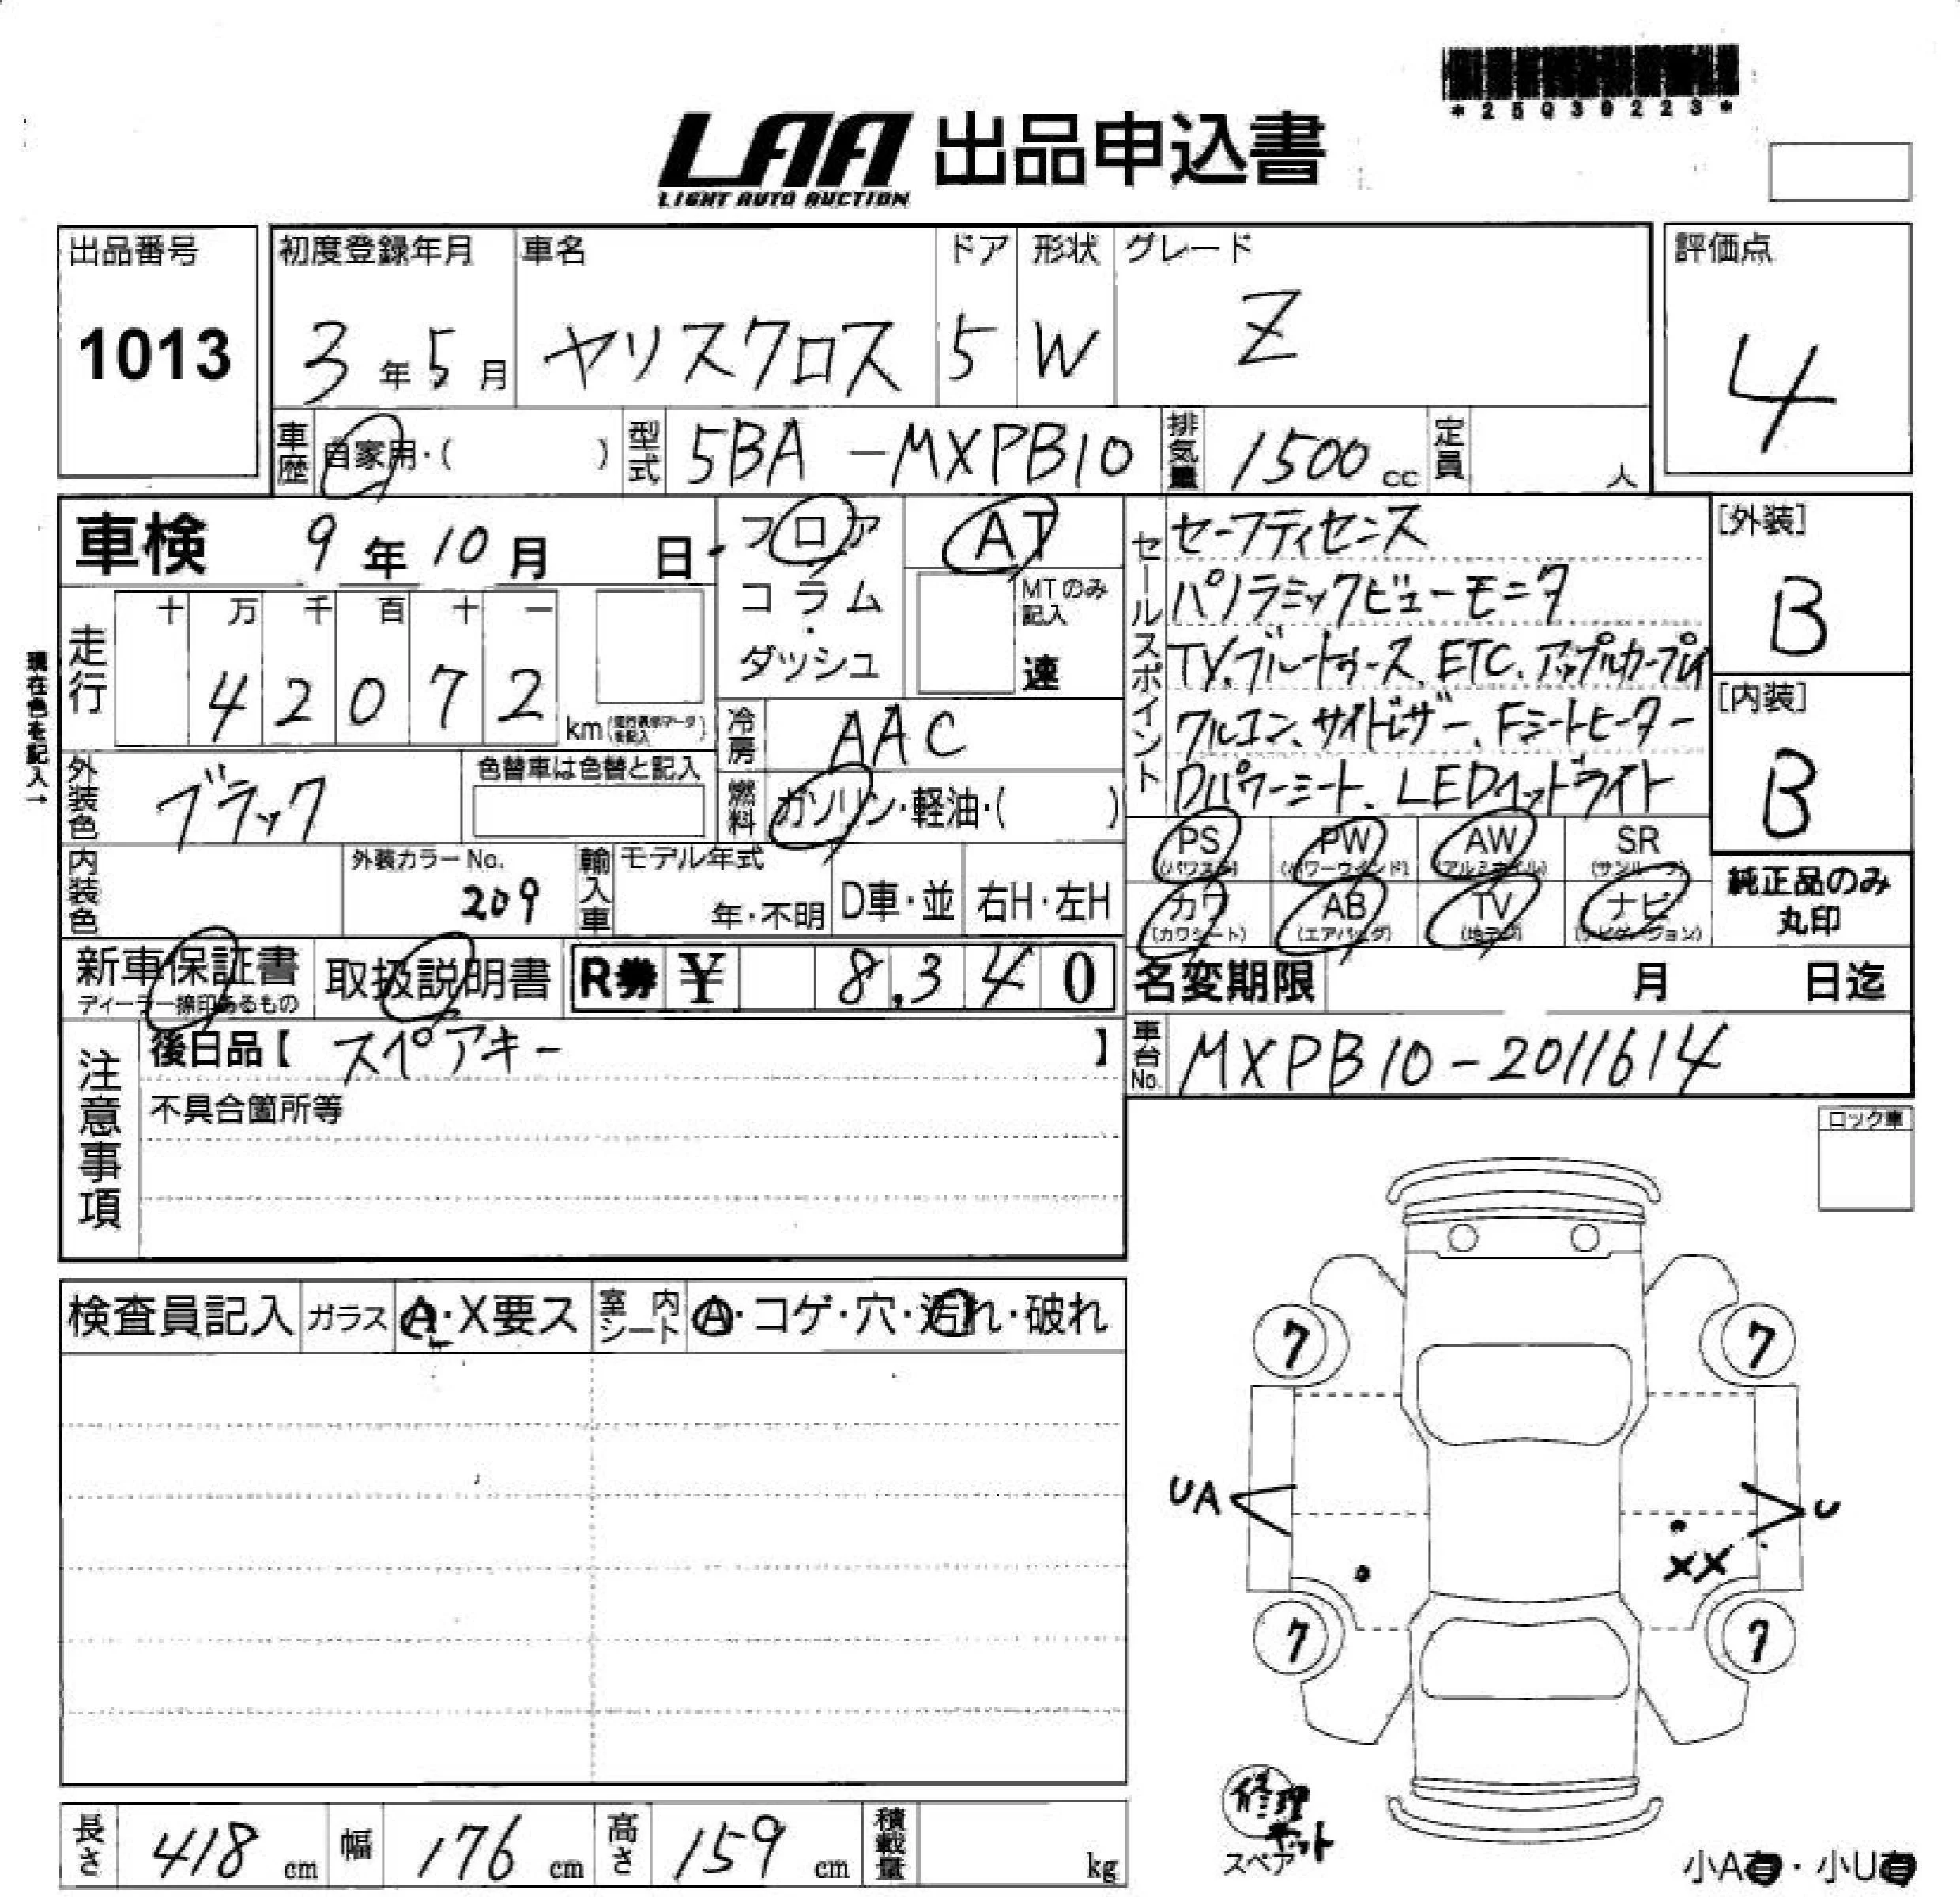 *25030223*
LAA 出品申込書
LIGHT AUTO AUCTION
出品番号 1013
初度登録年月 3年5月
車名 ヤリスクロス
ドア 5
形状 W
グレード Z
評価点 4
車歴 自家用・( )
型式 5BA-MXPB10
排気量 1500cc
定員 人
車検 9年10月 日
フロア
コラム
・
ダッシュ
AT
MTのみ記入
速
現在色を記入→
走行 十 万 千 百 十 一
42072 km
冷房 AAC
燃料 ガソリン・軽油・( )
外装色 ブラック
色替車は色替と記入
内装色
外装カラーNo. 209
輸入車
モデル年式
年・不明
D車・並
右H・左H
セールスポイント
セーフティセンス
パノラミックビューモニタ
TV、ブルートゥース、ETC、アップルカープレイ
クルコン、サイドレザー、Fシートヒーター
Dパワーシート、LEDヘッドライト
[外装] B
[内装] B
PS (パワステ)
PW (パワーウインド)
AW (アルミホイル)
SR (サンルーフ)
カワ (カワシート)
AB (エアバッグ)
TV (地デジ)
ナビ (ナビゲーション)
純正品のみ
丸印
新車保証書
ディーラー捺印あるもの
取扱説明書
R券 ¥ 8,340
名変期限 月 日迄
車台No. MXPB10-2011614
注意事項
後日品【 スペアキー 】
不具合箇所等
ロック車
検査員記入
ガラス A・X要ス
室内シート A・コゲ・穴・汚れ・破れ
7 7
UA U
XX
7 7
修理キット
スペア
小A有・小U有
長さ 418cm
幅 176cm
高さ 159cm
積載量 kg